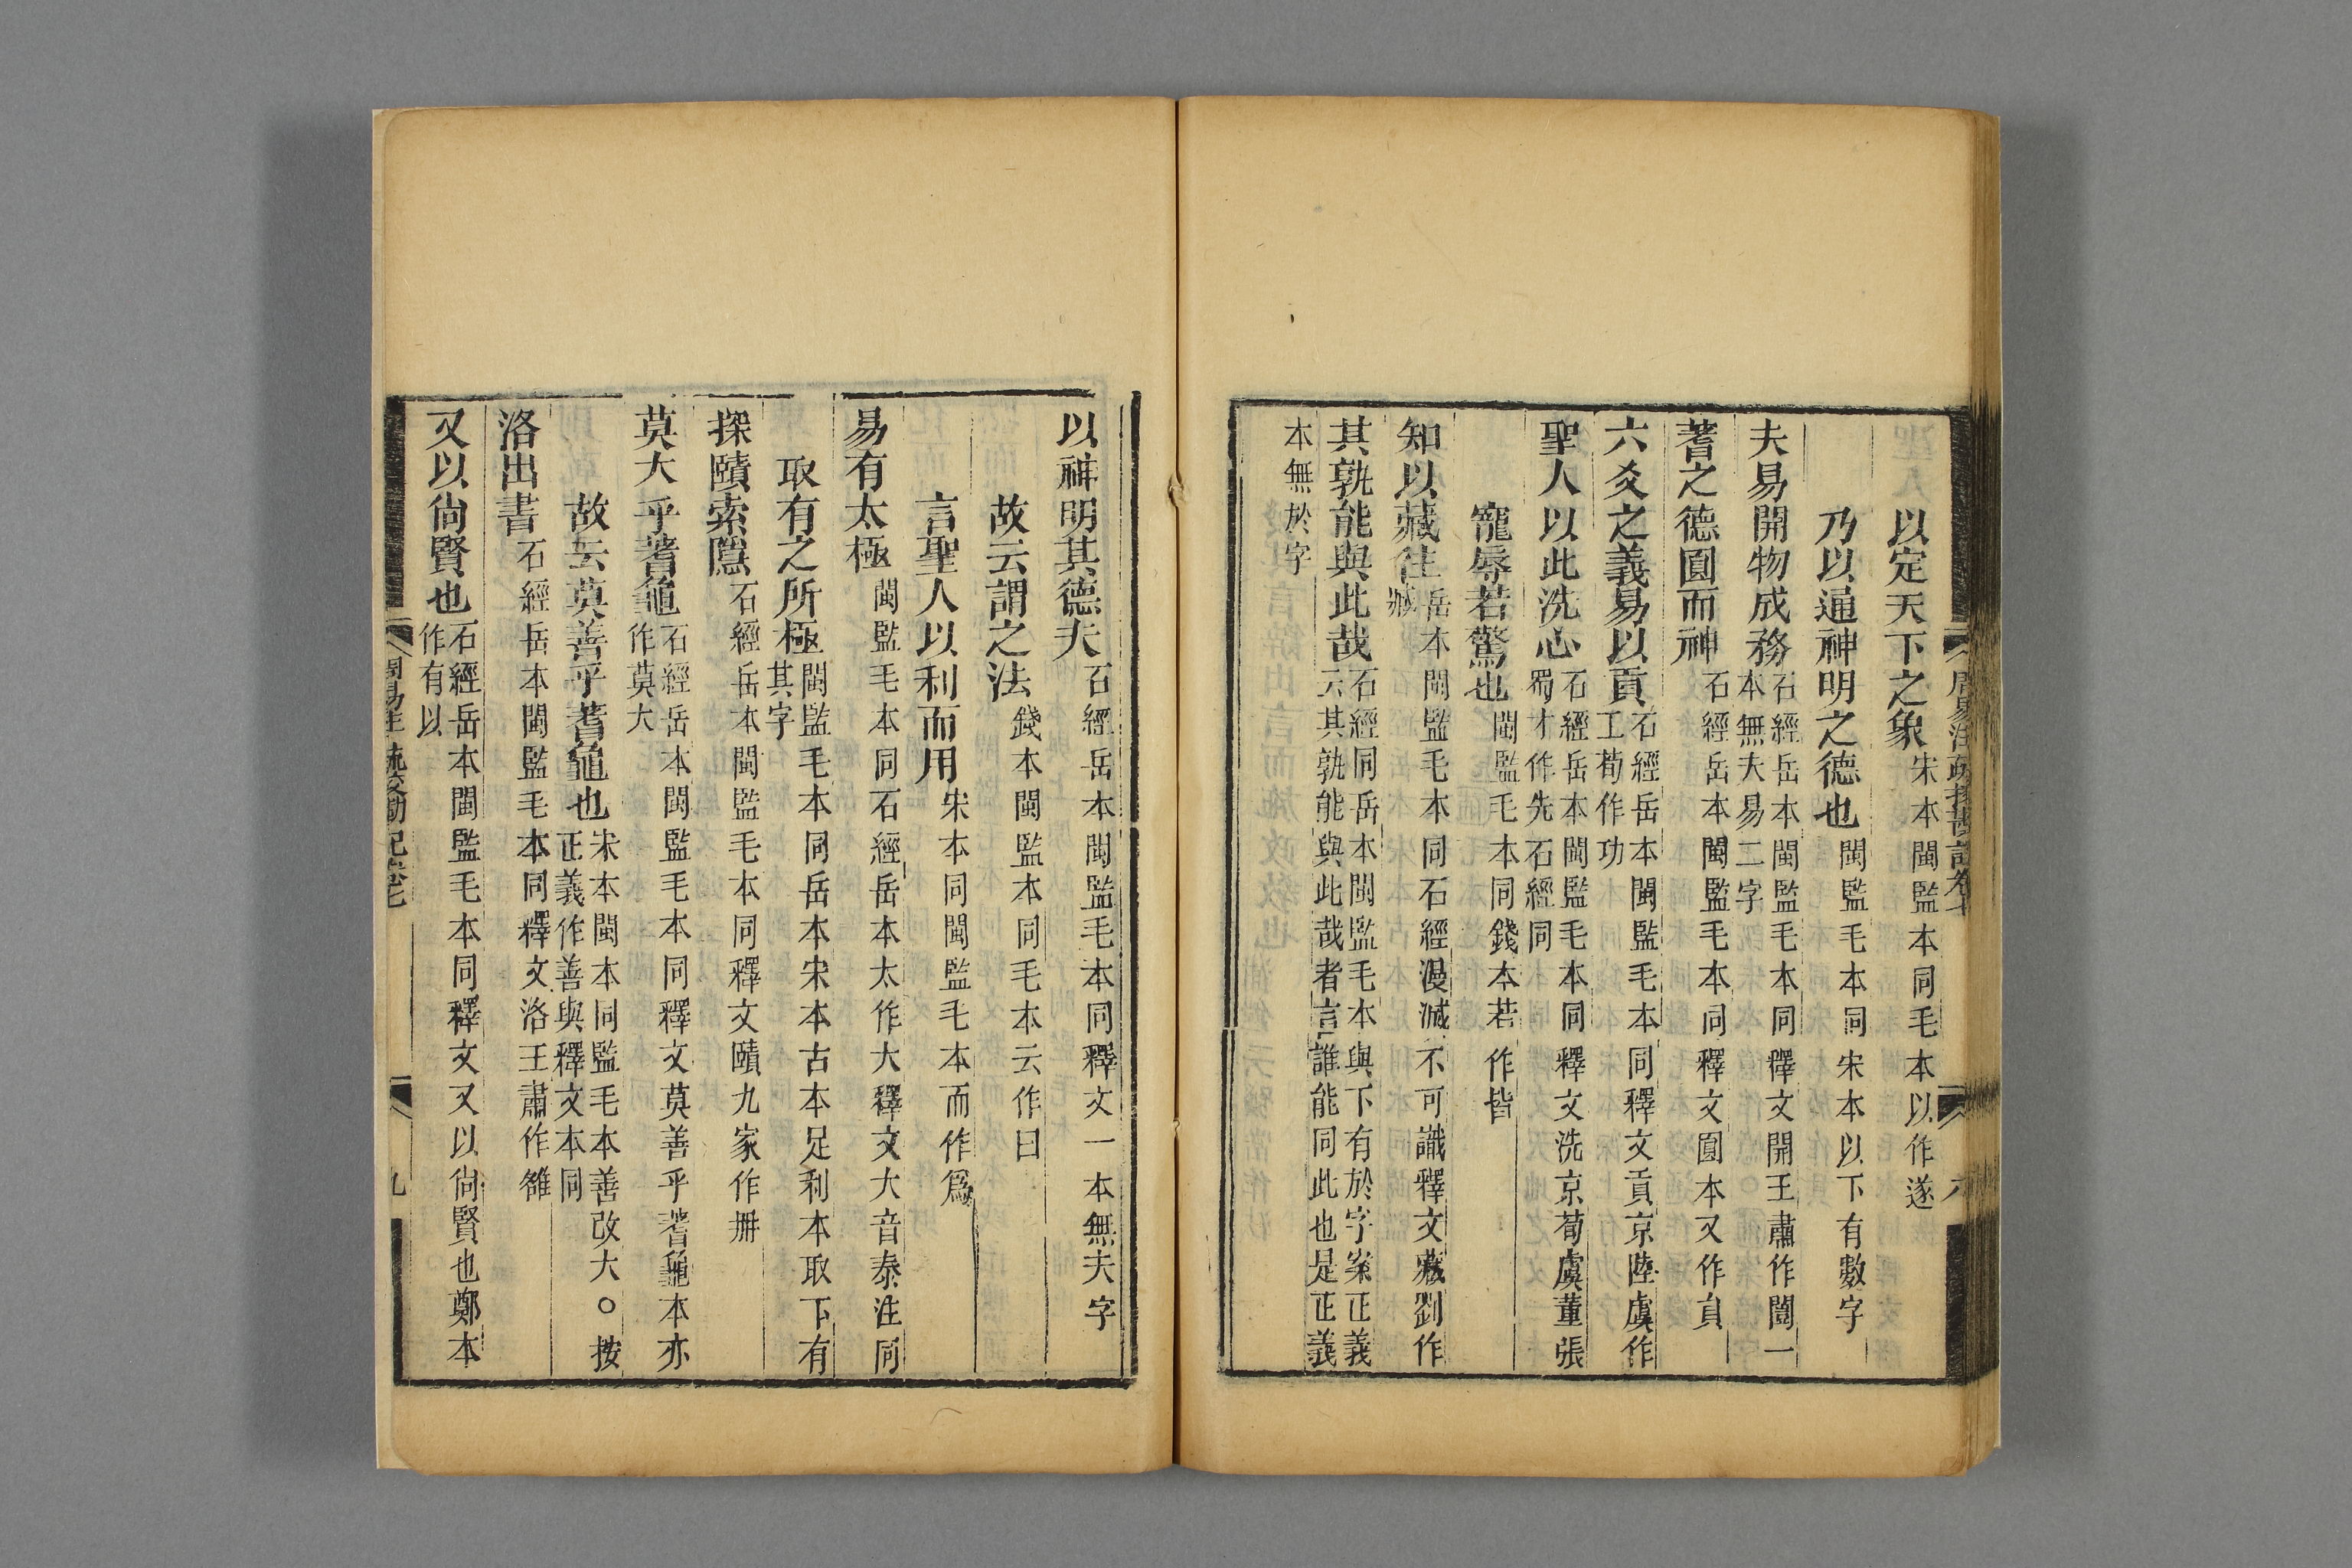 以定天下之象宋本閩監本同毛本以作遂
乃以通神明之德也閩監毛本同宋本以下有數字
夫易開物成務石經岳本閩監毛本同釋文開王肅作闓一本無夫易二字
蓍之德圓而神石經岳本閩監毛本同釋文圓本又作員
六爻之義易以貢石經岳本閩監毛本同釋文貢京陸虞作工荀作功
聖人以此洗心石經岳本閩監毛本同釋文洗京荀虞董張蜀才作先石經同
寵辱若驚也閩監毛本同錢本若作皆
知以藏往岳本閩監毛本同石經漫滅不可識釋文藏劉作臧
其孰能與此哉石經同岳本閩監毛本與下有於字案正義云其孰能與此哉者言誰能同此也是正義
本無於字
以神明其德夫石經岳本閩監毛本同釋文一本無夫字
故云謂之法錢本閩監本同毛本云作曰
言聖人以利而用宋本同閩監毛本而作爲
易有太極閩監毛本同石經岳本太作大釋文大音泰注同
取有之所極閩監毛本同岳本宋本古本足利本取下有其字
探賾索隱石經岳本閩監毛本同釋文賾九家作冊
莫大乎蓍龜石經岳本閩監毛本同釋文莫善乎蓍龜本亦作莫大
故云莫善乎蓍龜也宋本閩本同監毛本善改大○按正義作善與釋文本同
洛出書石經岳本閩監毛本同釋文洛王肅作雒
又以尙賢也石經岳本閩監毛本同釋文又以尙賢也鄭本作有以
周易注疏校勘記卷七
九